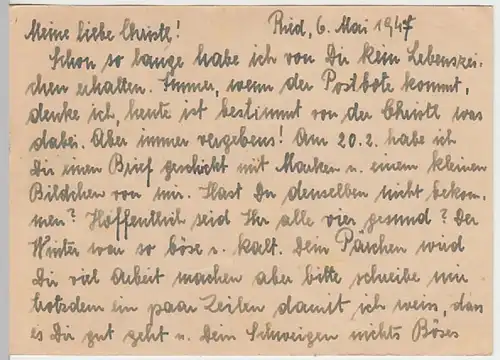 Meine liebe Christl! Ried, 6. Mai 1947
Schon so lange habe ich von Dir kein Lebenszei-
chen erhalten. Immer, wenn der Postbote kommt,
denke ich, heute ist bestimmt von der Christl was
dabei. Aber immer vergebens! Am 20.2. habe ich
Dir einen Brief geschickt mit Marken u. einem kleinen
Bildchen von mir. Hast Du denselben nicht bekom-
men? Hoffentlich seid Ihr alle vier gesund? Der
Winter war so böse u. kalt. Dein Pärchen wird
Dir viel Arbeit machen aber bitte schreibe mir
trotzdem ein paar Zeilen damit ich weiss, dass
es Dir gut geht u. Dein Schweigen nichts Böses